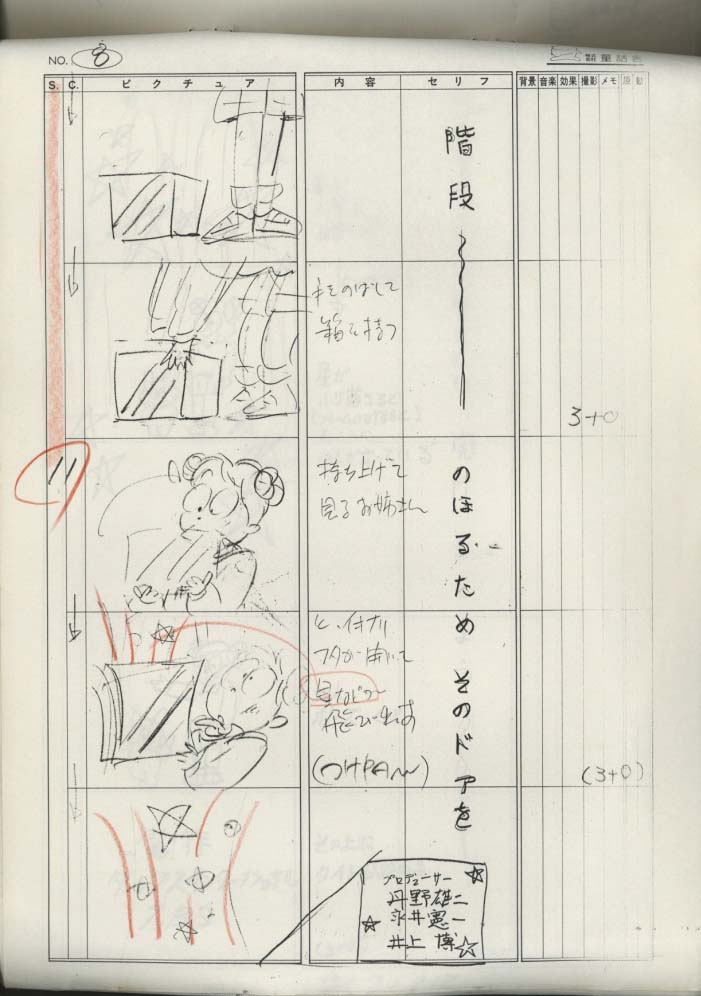 NO. 8
童話舎
S. C. ピクチュア 内容 セリフ 背景 音楽 効果 撮影 メモ 原 動
階段〜
手をのばして
箱を持つ
3+0
11
持ち上げて
見るお姉さん
のぼるため そのドアを
と、イキナリ
フタが開いて
星などが
飛び出す
(つけPAN)
(3+0)
プロデューサー
丹野雄二
永井憲一
井上 博